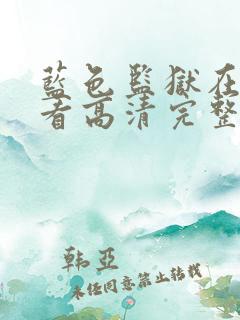 藍色監獄在
看高清完整
韩亚
未经同意禁止转载